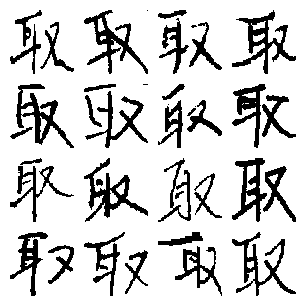 取取取取
取取取取
取取取取
取取取取